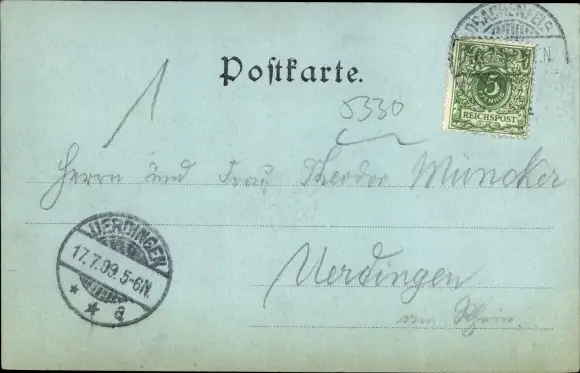 DRACHENFELS
Postkarte.
5
REICHSPOST
1
5330
Herrn und Frau Theodor Müncker
UERDINGEN
17.7.99.5-6N.
* * a
Uerdingen
am Rhein.